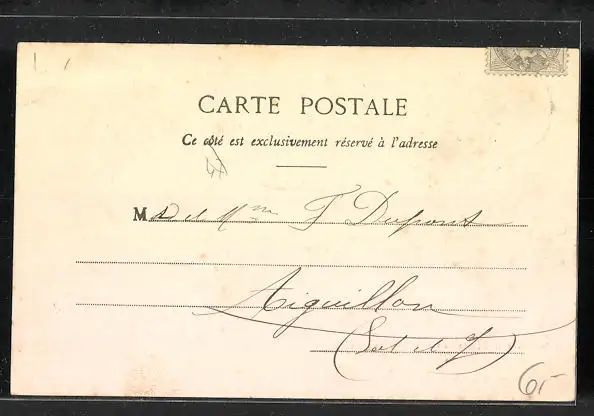 CARTE POSTALE
Ce côté est exclusivement réservé à l'adresse
M. et Mme F Dupont
Aiguillon
(Lot et G)
6,-